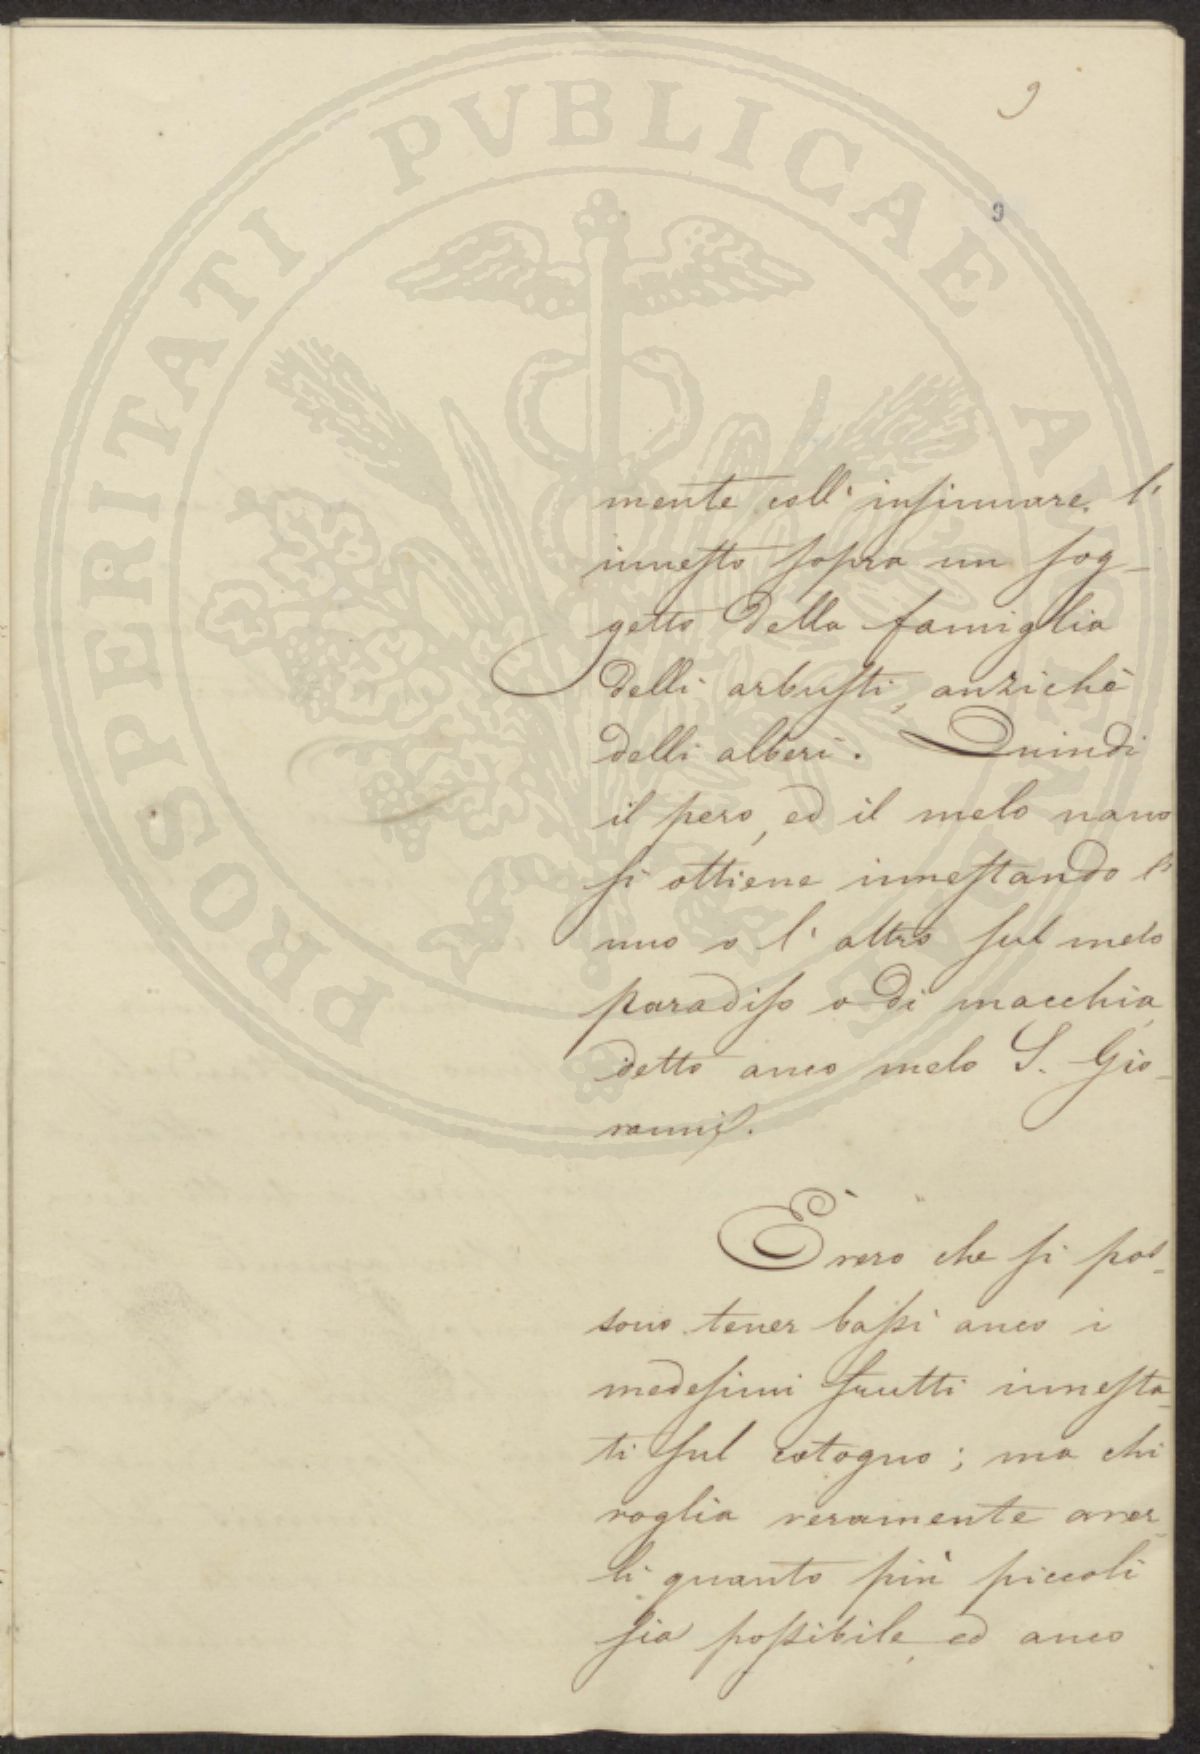 9
9
PROSPERITATI PUBLICAE AUGENDAE
mente coll' insinuare l'
innesto sopra un sog-
getto della famiglia
delli arbusti, anzichè
delli alberi. Quindi
il pero, ed il melo nano
si ottiene innestando l'
uno o l' altro sul melo
paradiso o di macchia,
detto anco melo S. Gio-
vanni.
È vero che si pos-
sono tener bassi anco i
medesimi frutti innesta-
ti sul cotogno; ma chi
voglia veramente aver-
li quanto più piccoli
sia possibile, ed anco